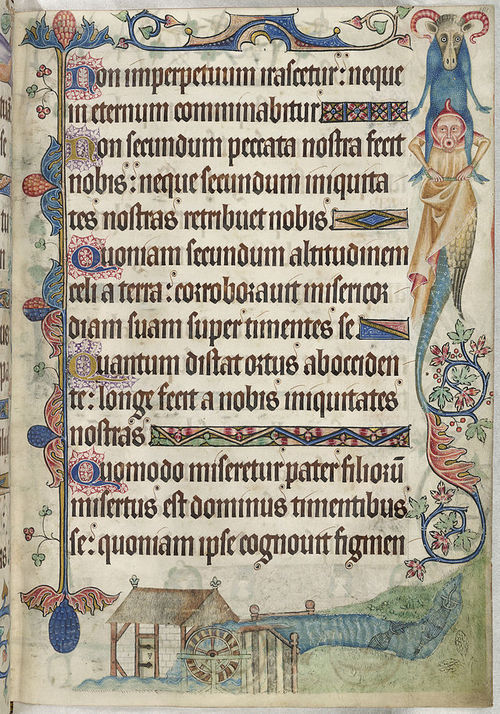 Non imperpetuum irascetur: neque
in eternum comminabitur
Non secundum peccata nostra fecit
nobis: neque secundum iniquita
tes nostras retribuet nobis
Quoniam secundum altitudinem
celi a terra: corroboravit misericor
diam suam super timentes se
Quantum distat ortus abocciden
te: longe fecit a nobis iniquitates
nostras
Quomodo miseretur pater filiorū
misertus est dominus timentibus
se: quoniam ipse cognovit figmen